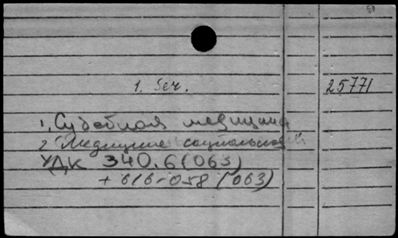 1. Ser. 25771
1, Судебная медицина
2 Медицина социальная
УДК 340.6(063)
+ 616-058 (063)